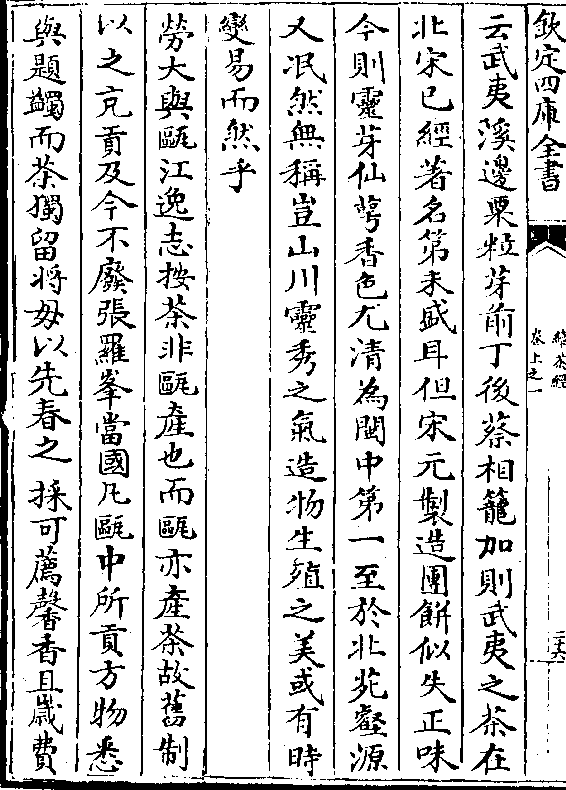 欽定四庫全書
續茶經
卷上之一
三六
云武夷溪邊粟粒芽前丁後蔡相籠加則武夷之茶在
北宋已經著名第未盛耳但宋元製造團餅似失正味
今則靈芽仙萼香色尤清為閩中第一至於北苑壑源
又泯然無稱豈山川靈秀之氣造物生殖之美或有時
變易而然乎
勞大與甌江逸志按茶非甌產也而甌亦產茶故舊制
以之充貢及今不廢張羅峯當國凡甌中所貢方物悉
與題蠲而茶獨留將毋以先春之採可薦馨香且歲費